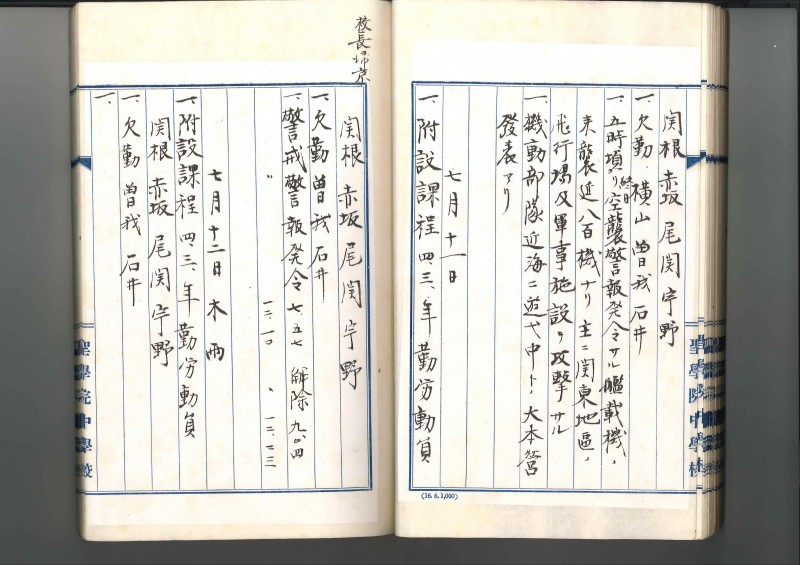 関根 赤坂 尾関 宇野
一、欠勤 横山 曽我 石井
一、五時頃ヨリ終日空襲警報発令サル艦載機ノ
来襲延八百機ナリ 主ニ関東地區ノ
飛行場及軍事施設ヲ攻撃サル
一、機動部隊近海ニ遊弋中ト、大本営
發表アリ
七月十一日
一、附設課程四、三、年勤労動員
(16. 6. 1,000)
聖學院中學校
校長帰京
関根 赤坂 尾関 宇野
一、欠勤 曽我 石井
一、警戒警報発令 七、五七 解除 九、〇四
〃 一二、一〇 〃 一二、二三
七月十二日 木 雨
一、附設課程四、三、年勤労動員
関根 赤坂 尾関 宇野
一、欠勤 曽我 石井
一、
聖學院中學校